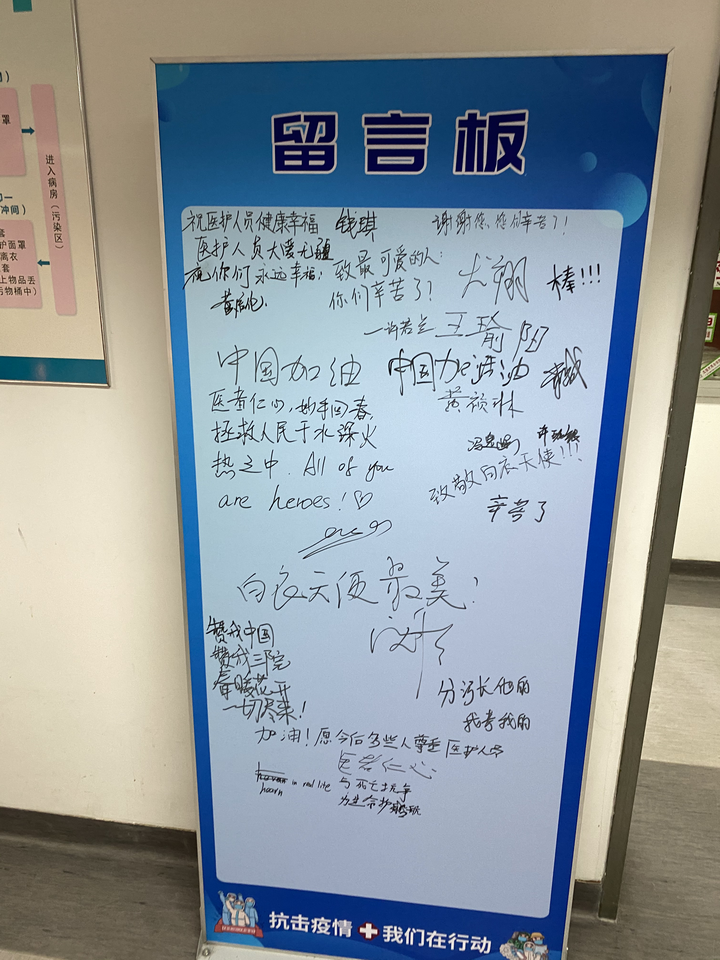 留言板
祝医护人员健康幸福 钱琪
谢谢您、您们辛苦了!
医护人员大爱无疆
祝你们永远幸福!
致最可爱的人:
你们辛苦了!
尤翔
棒!!!
一许若兰
王瑜阳
中国加油
中国加油
黄祯琳
医者仁心,妙手回春,
拯救人民于水深火
热之中. All of you
are heroes! ♡
致敬白衣天使!!!
辛苦了
白衣天使最美!
赞我中国
赞我三院
春暖花开
一切尽来!
分污长他的
我考我的
加油!愿今后多些人尊重医护人员
医者仁心
in real life 与死亡抗争
为生命护航
抗击疫情 我们在行动
进入病房(污染区)
罩
冲间)
套
护面罩
离衣
套
上物品丢
污物桶中)